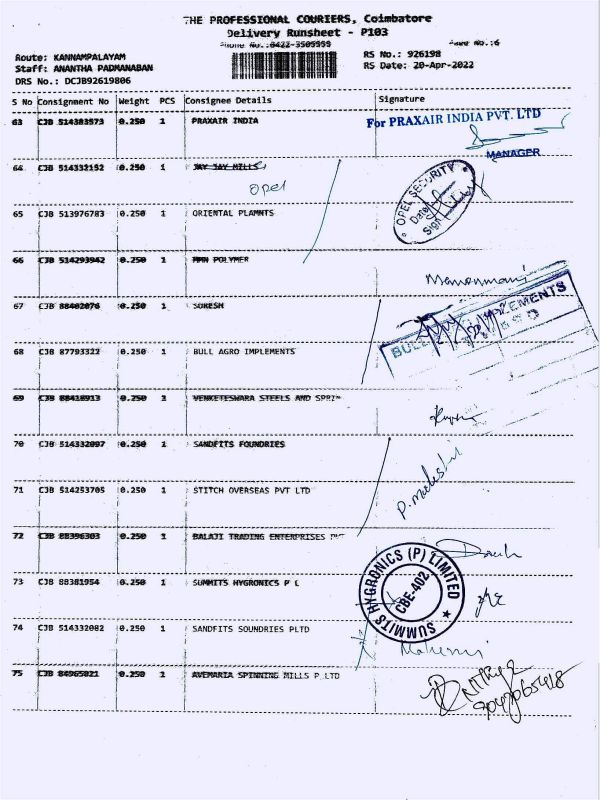 THE PROFESSIONAL COURIERS, Coimbatore
Delivery Runsheet - P103
Phone No.:0422-3509999
Page No.:6
Route: KANNAMPALAYAM
RS No.: 926198
Staff: ANANTHA PADMANABAN
RS Date: 20-Apr-2022
DRS No.: DCJB92619806
S No Consignment No Weight PCS Consignee Details Signature
63 CJB 514383573 0.250 1 PRAXAIR INDIA
For PRAXAIR INDIA PVT. LTD
MANAGER
64 CJB 514332152 0.250 1 JAY JAY MILLS
Opel
OPEL SECURITY
Date
Sign
65 CJB 513976783 0.250 1 ORIENTAL PLAMNTS
66 CJB 514293942 0.250 1 MMN POLYMER
67 CJB 88402076 0.250 1 SURESH
68 CJB 87793322 0.250 1 BULL AGRO IMPLEMENTS
69 CJB 88418913 0.250 1 VENKETESWARA STEELS AND SPRIN
70 CJB 514332097 0.250 1 SANDFITS FOUNDRIES
71 CJB 514253705 0.250 1 STITCH OVERSEAS PVT LTD
72 CJB 88396303 0.250 1 BALAJI TRADING ENTERPRISES PVT
73 CJB 88381954 0.250 1 SUMMITS HYGRONICS P L
SUMMITS HYGRONICS (P) LIMITED
CBE-402
74 CJB 514332082 0.250 1 SANDFITS SOUNDRIES PLTD
75 CJB 84965021 0.250 1 AVEMARIA SPINNING MILLS P LTD